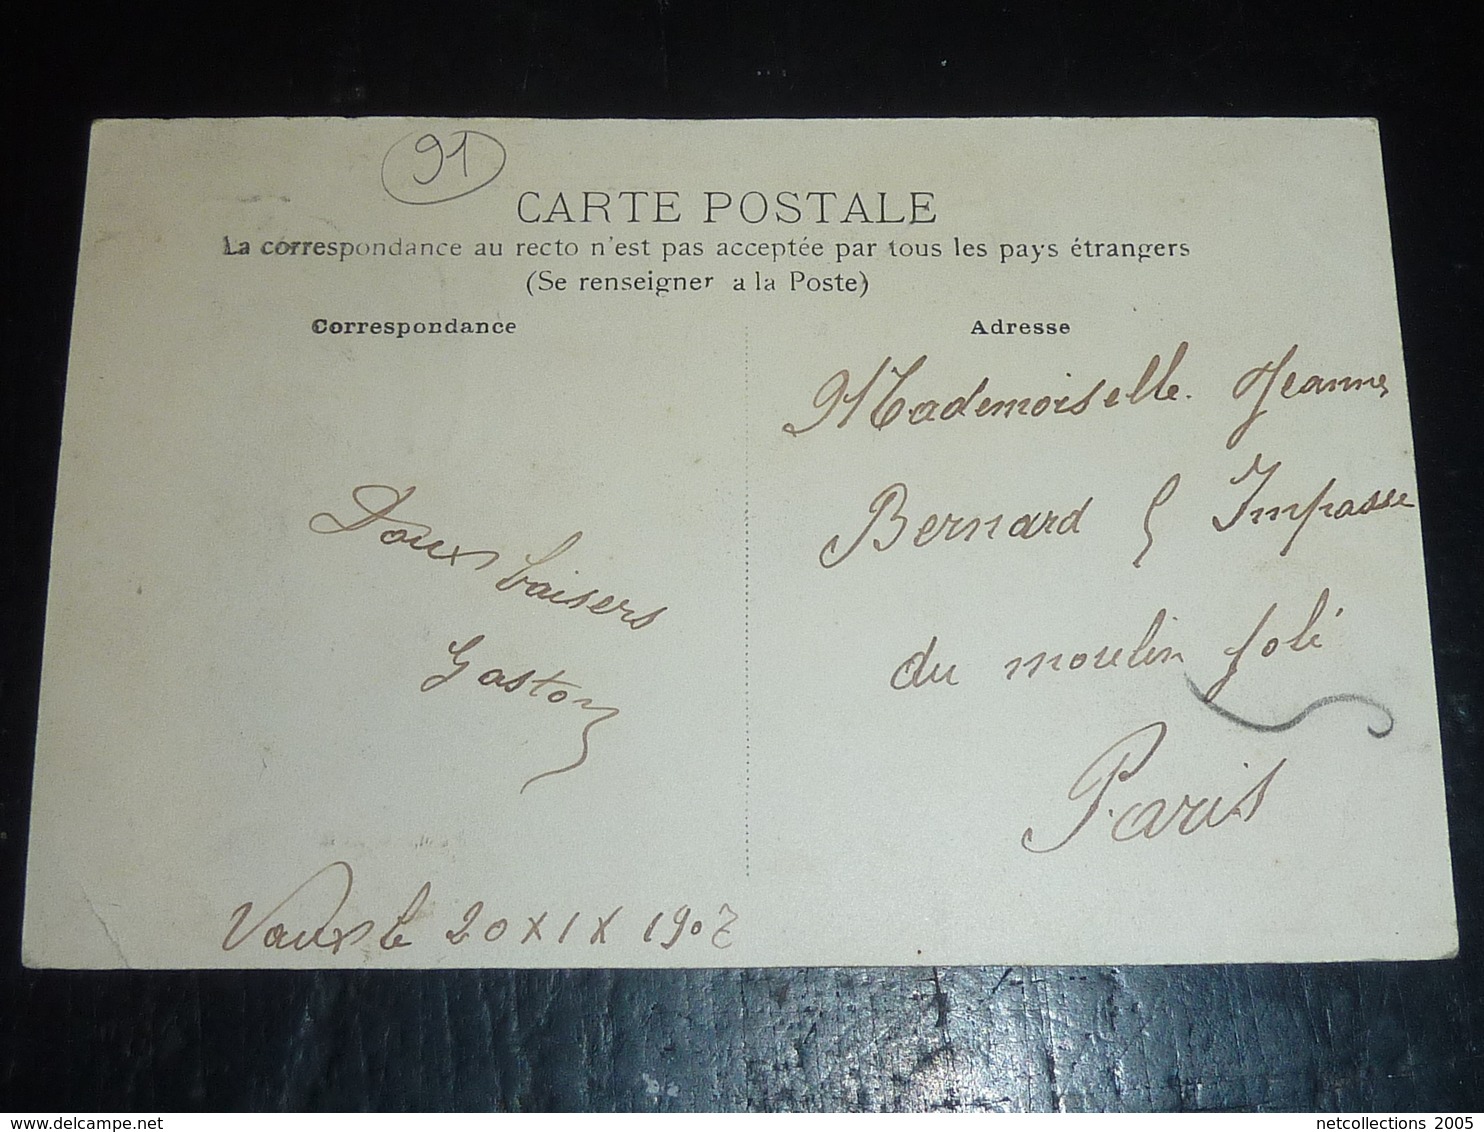 91
CARTE POSTALE
La correspondance au recto n'est pas acceptée par tous les pays étrangers
(Se renseigner a la Poste)
Correspondance
Doux baisers
Gaston
Vaux le 20 X 1 X 1907
Adresse
Mademoiselle Jeanne
Bernard 5 Impasse
du moulin joli
Paris
delcampe.net
netcollections 2005